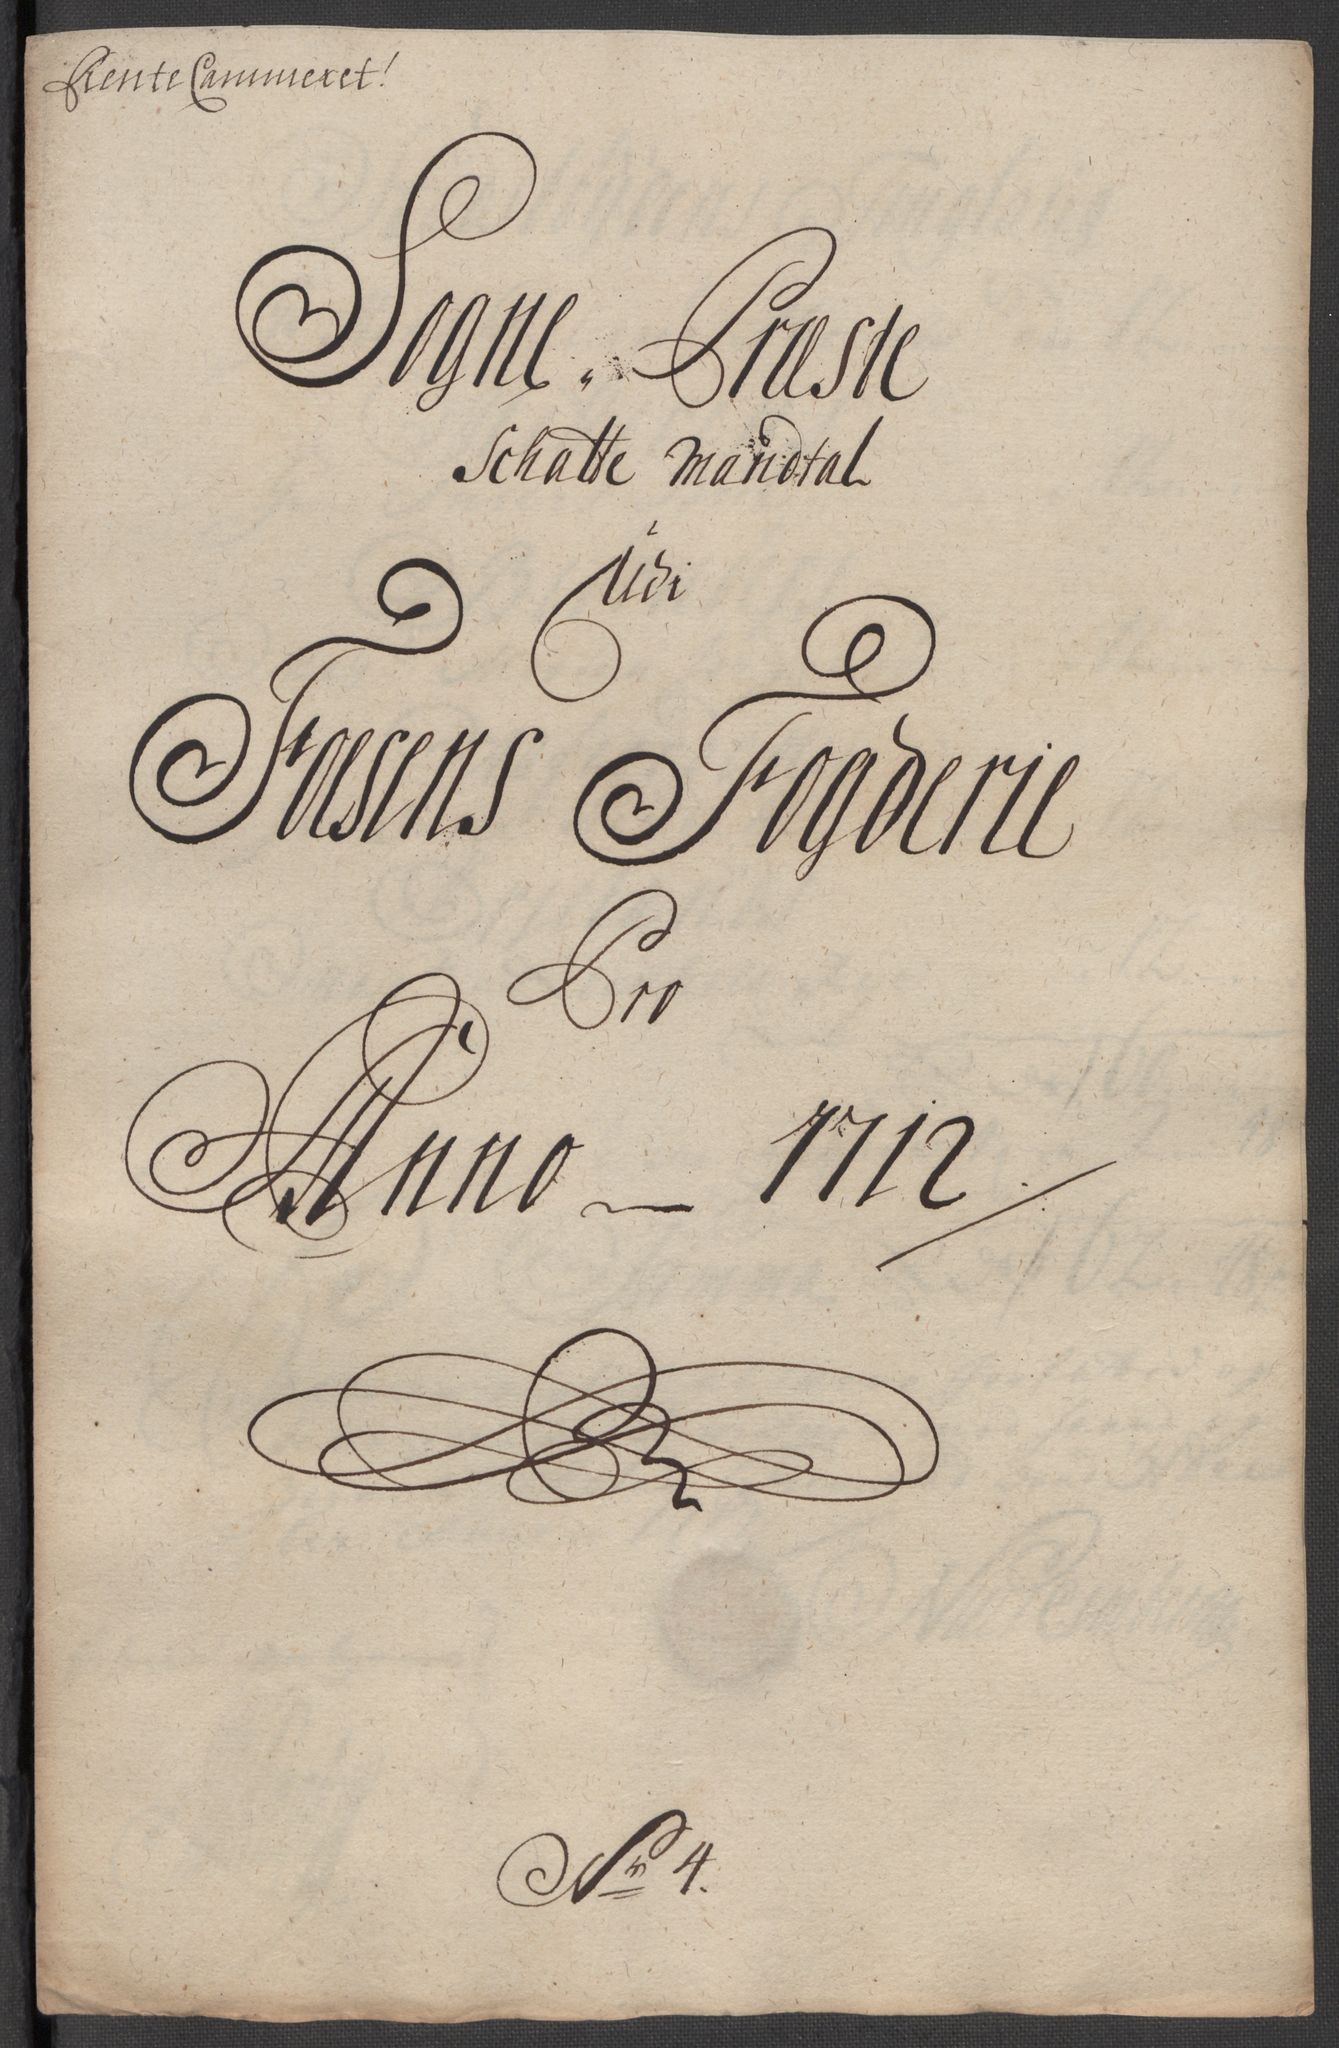 RenteCammeret!
Sogne Præste
Schatte Mandtal
Udi
Fosens Fogderie
Pro
Anno 1712
No 4.